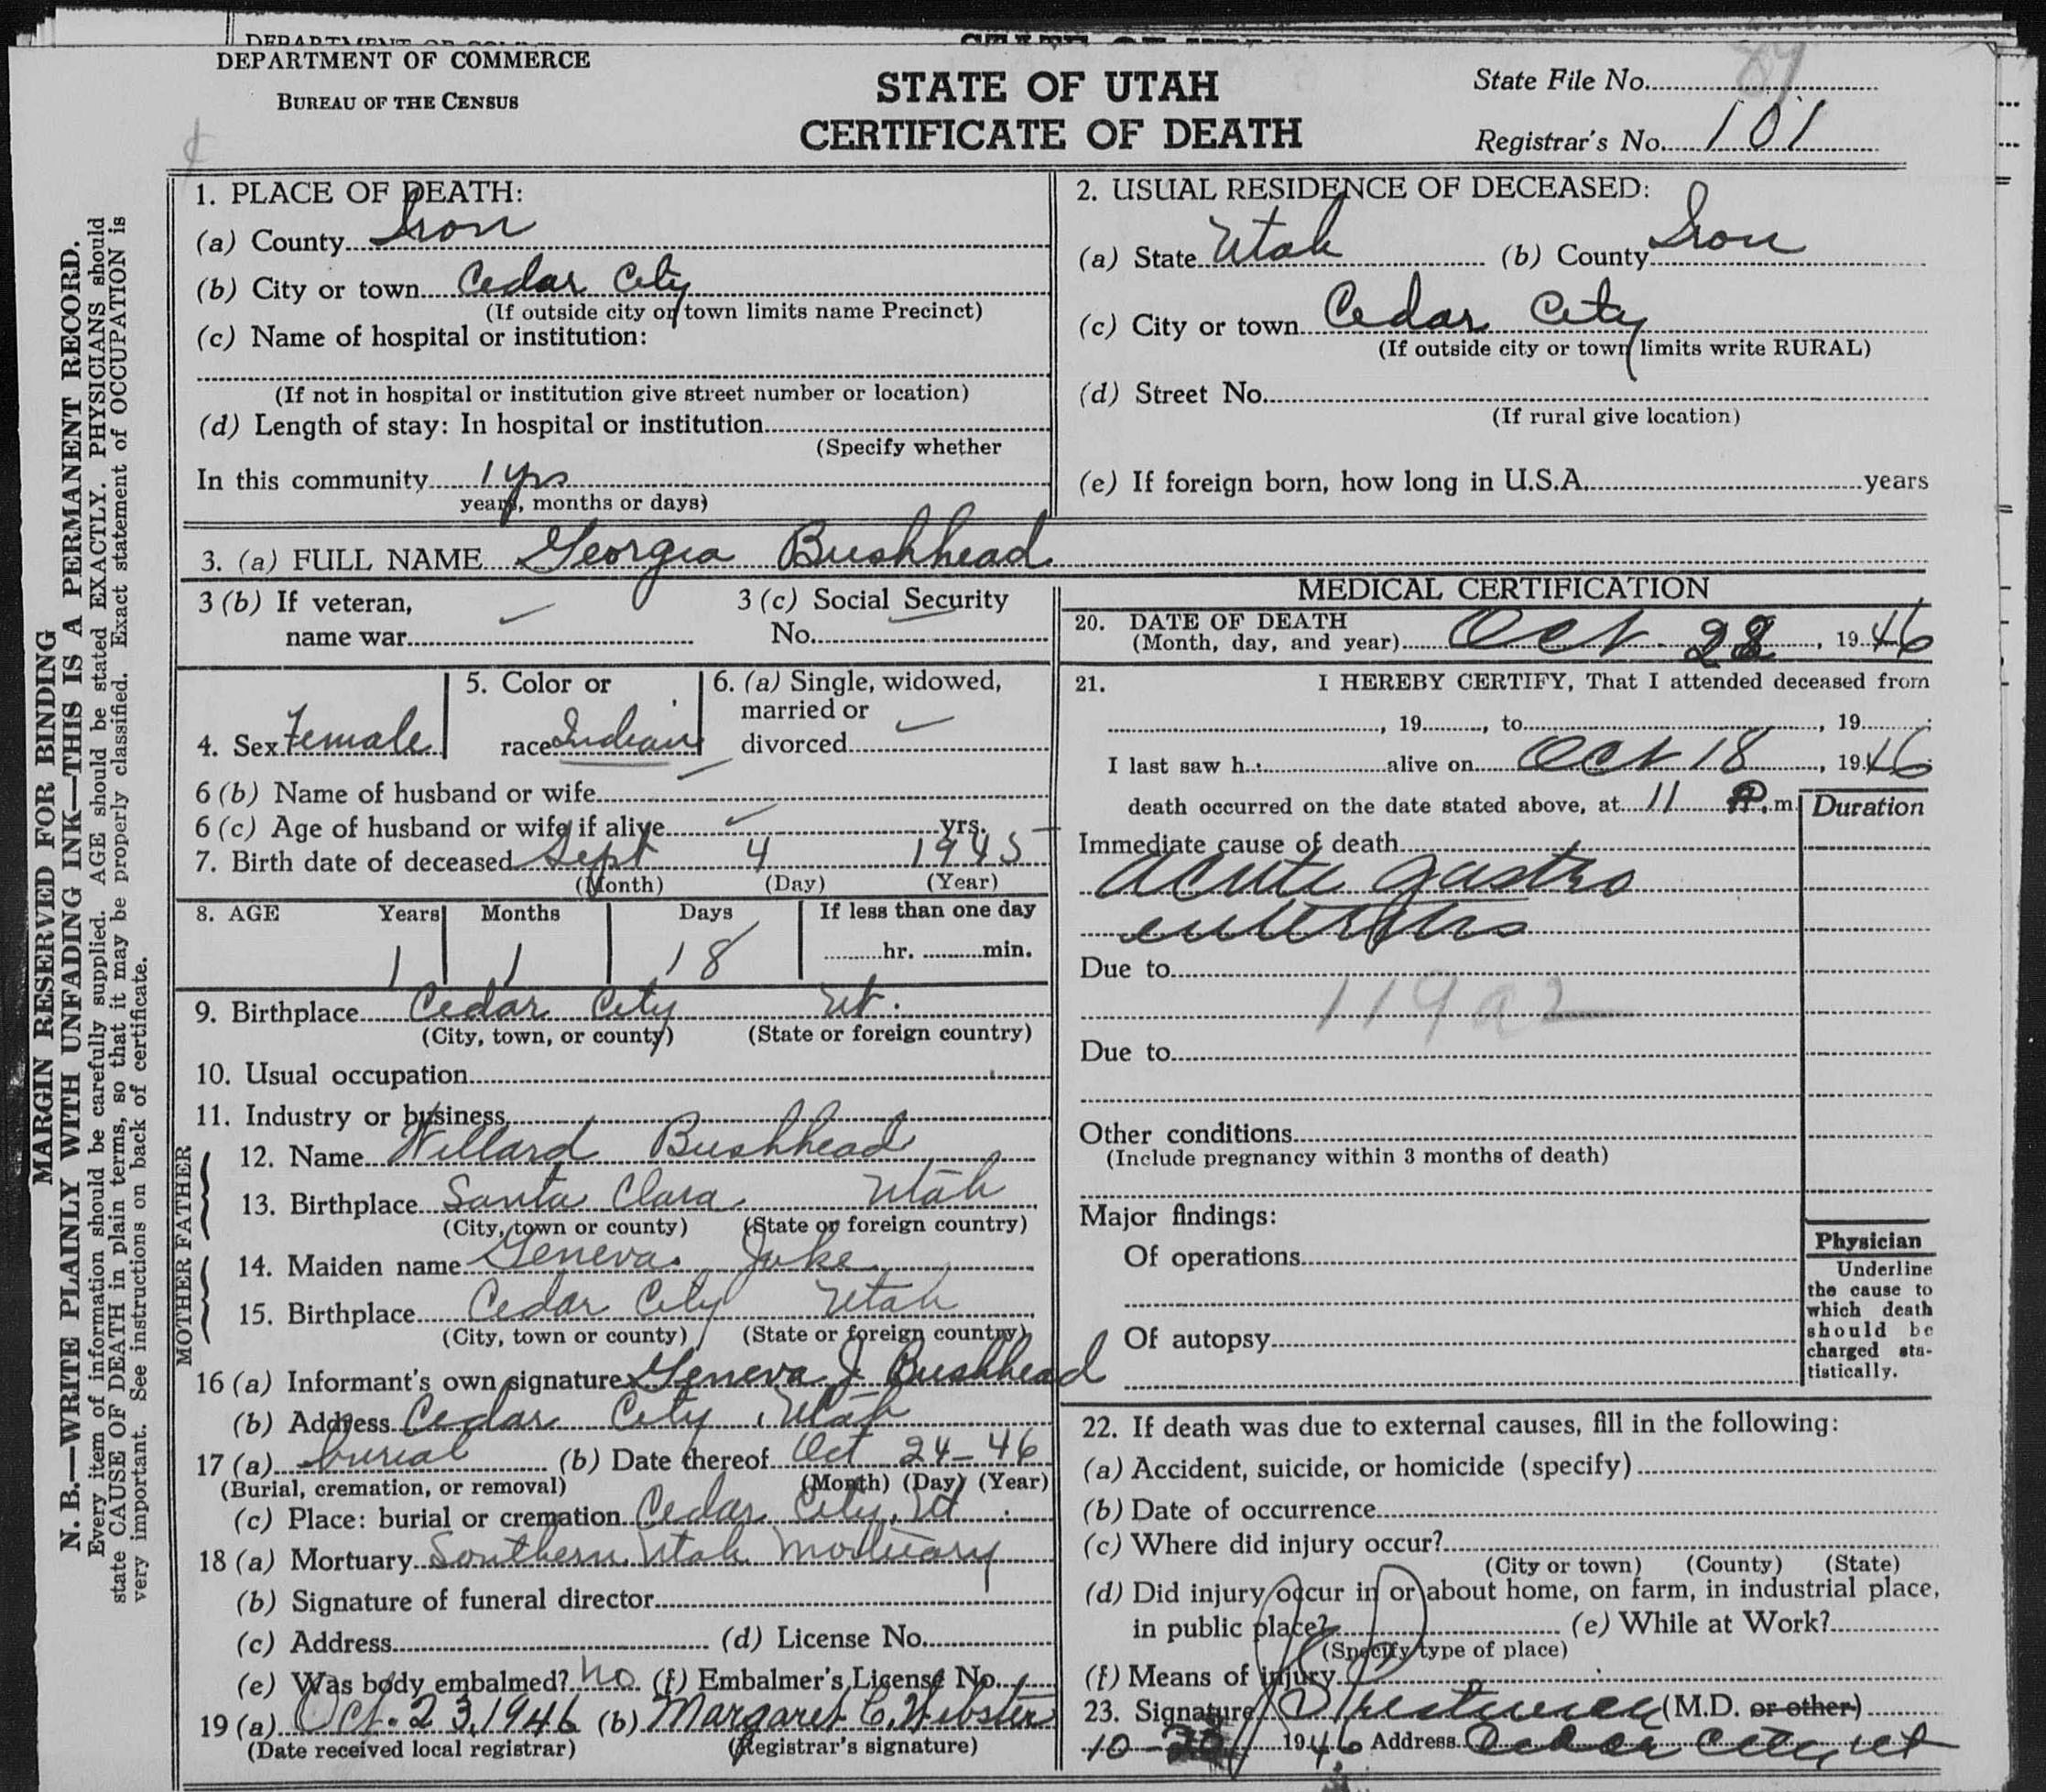 DEPARTMENT OF COMMERCE
BUREAU OF THE CENSUS
STATE OF UTAH
CERTIFICATE OF DEATH
State File No. 87
Registrar's No. 101
MARGIN RESERVED FOR BINDING
N. B.—WRITE PLAINLY WITH UNFADING INK—THIS IS A PERMANENT RECORD.
Every item of information should be carefully supplied. AGE should be stated EXACTLY. PHYSICIANS should
state CAUSE OF DEATH in plain terms, so that it may be properly classified. Exact statement of OCCUPATION is
very important. See instructions on back of certificate.
1. PLACE OF DEATH:
(a) County Iron
(b) City or town Cedar City
(If outside city or town limits name Precinct)
(c) Name of hospital or institution:
(If not in hospital or institution give street number or location)
(d) Length of stay: In hospital or institution
(Specify whether
In this community 1 yrs
years, months or days)
2. USUAL RESIDENCE OF DECEASED:
(a) State Utah (b) County Iron
(c) City or town Cedar City
(If outside city or town limits write RURAL)
(d) Street No.
(If rural give location)
(e) If foreign born, how long in U.S.A. years
3. (a) FULL NAME Georgia Bushhead
3 (b) If veteran,
name war
3 (c) Social Security
No.
4. Sex Female
5. Color or
race Indian
6. (a) Single, widowed,
married or
divorced
6 (b) Name of husband or wife
6 (c) Age of husband or wife if alive yrs.
7. Birth date of deceased Sept 4 1945
(Month) (Day) (Year)
8. AGE Years Months Days If less than one day
1 1 18 hr. min.
9. Birthplace Cedar City Ut.
(City, town, or county) (State or foreign country)
10. Usual occupation
11. Industry or business
FATHER
12. Name Willard Bushhead
13. Birthplace Santa Clara Utah
(City, town or county) (State or foreign country)
MOTHER
14. Maiden name Geneva Jake
15. Birthplace Cedar City Utah
(City, town or county) (State or foreign country)
16 (a) Informant's own signature Geneva J Bushhead
(b) Address Cedar City, Utah
17 (a) burial (b) Date thereof Oct 24-46
(Burial, cremation, or removal) (Month) (Day) (Year)
(c) Place: burial or cremation Cedar City, Ut
18 (a) Mortuary Southern Utah Mortuary
(b) Signature of funeral director
(c) Address (d) License No.
(e) Was body embalmed? no (f) Embalmer's License No.
19 (a) Oct. 23, 1946 (b) Margaret C. Webster
(Date received local registrar) (Registrar's signature)
MEDICAL CERTIFICATION
20. DATE OF DEATH
(Month, day, and year) Oct 22, 1946
21. I HEREBY CERTIFY, That I attended deceased from
, 19 , to , 19 ;
I last saw h alive on Oct 18, 1946
death occurred on the date stated above, at 11 P. m.
Duration
Immediate cause of death
acute gastro
enteritis
Due to
119a2
Due to
Other conditions
(Include pregnancy within 3 months of death)
Major findings:
Of operations
Of autopsy
Physician
Underline
the cause to
which death
should be
charged sta-
tistically.
22. If death was due to external causes, fill in the following:
(a) Accident, suicide, or homicide (specify)
(b) Date of occurrence
(c) Where did injury occur?
(City or town) (County) (State)
(d) Did injury occur in or about home, on farm, in industrial place,
in public place? (e) While at Work?
(Specify type of place)
(f) Means of injury
23. Signature (M.D. or other)
10- 1946 Address Cedar City Ut